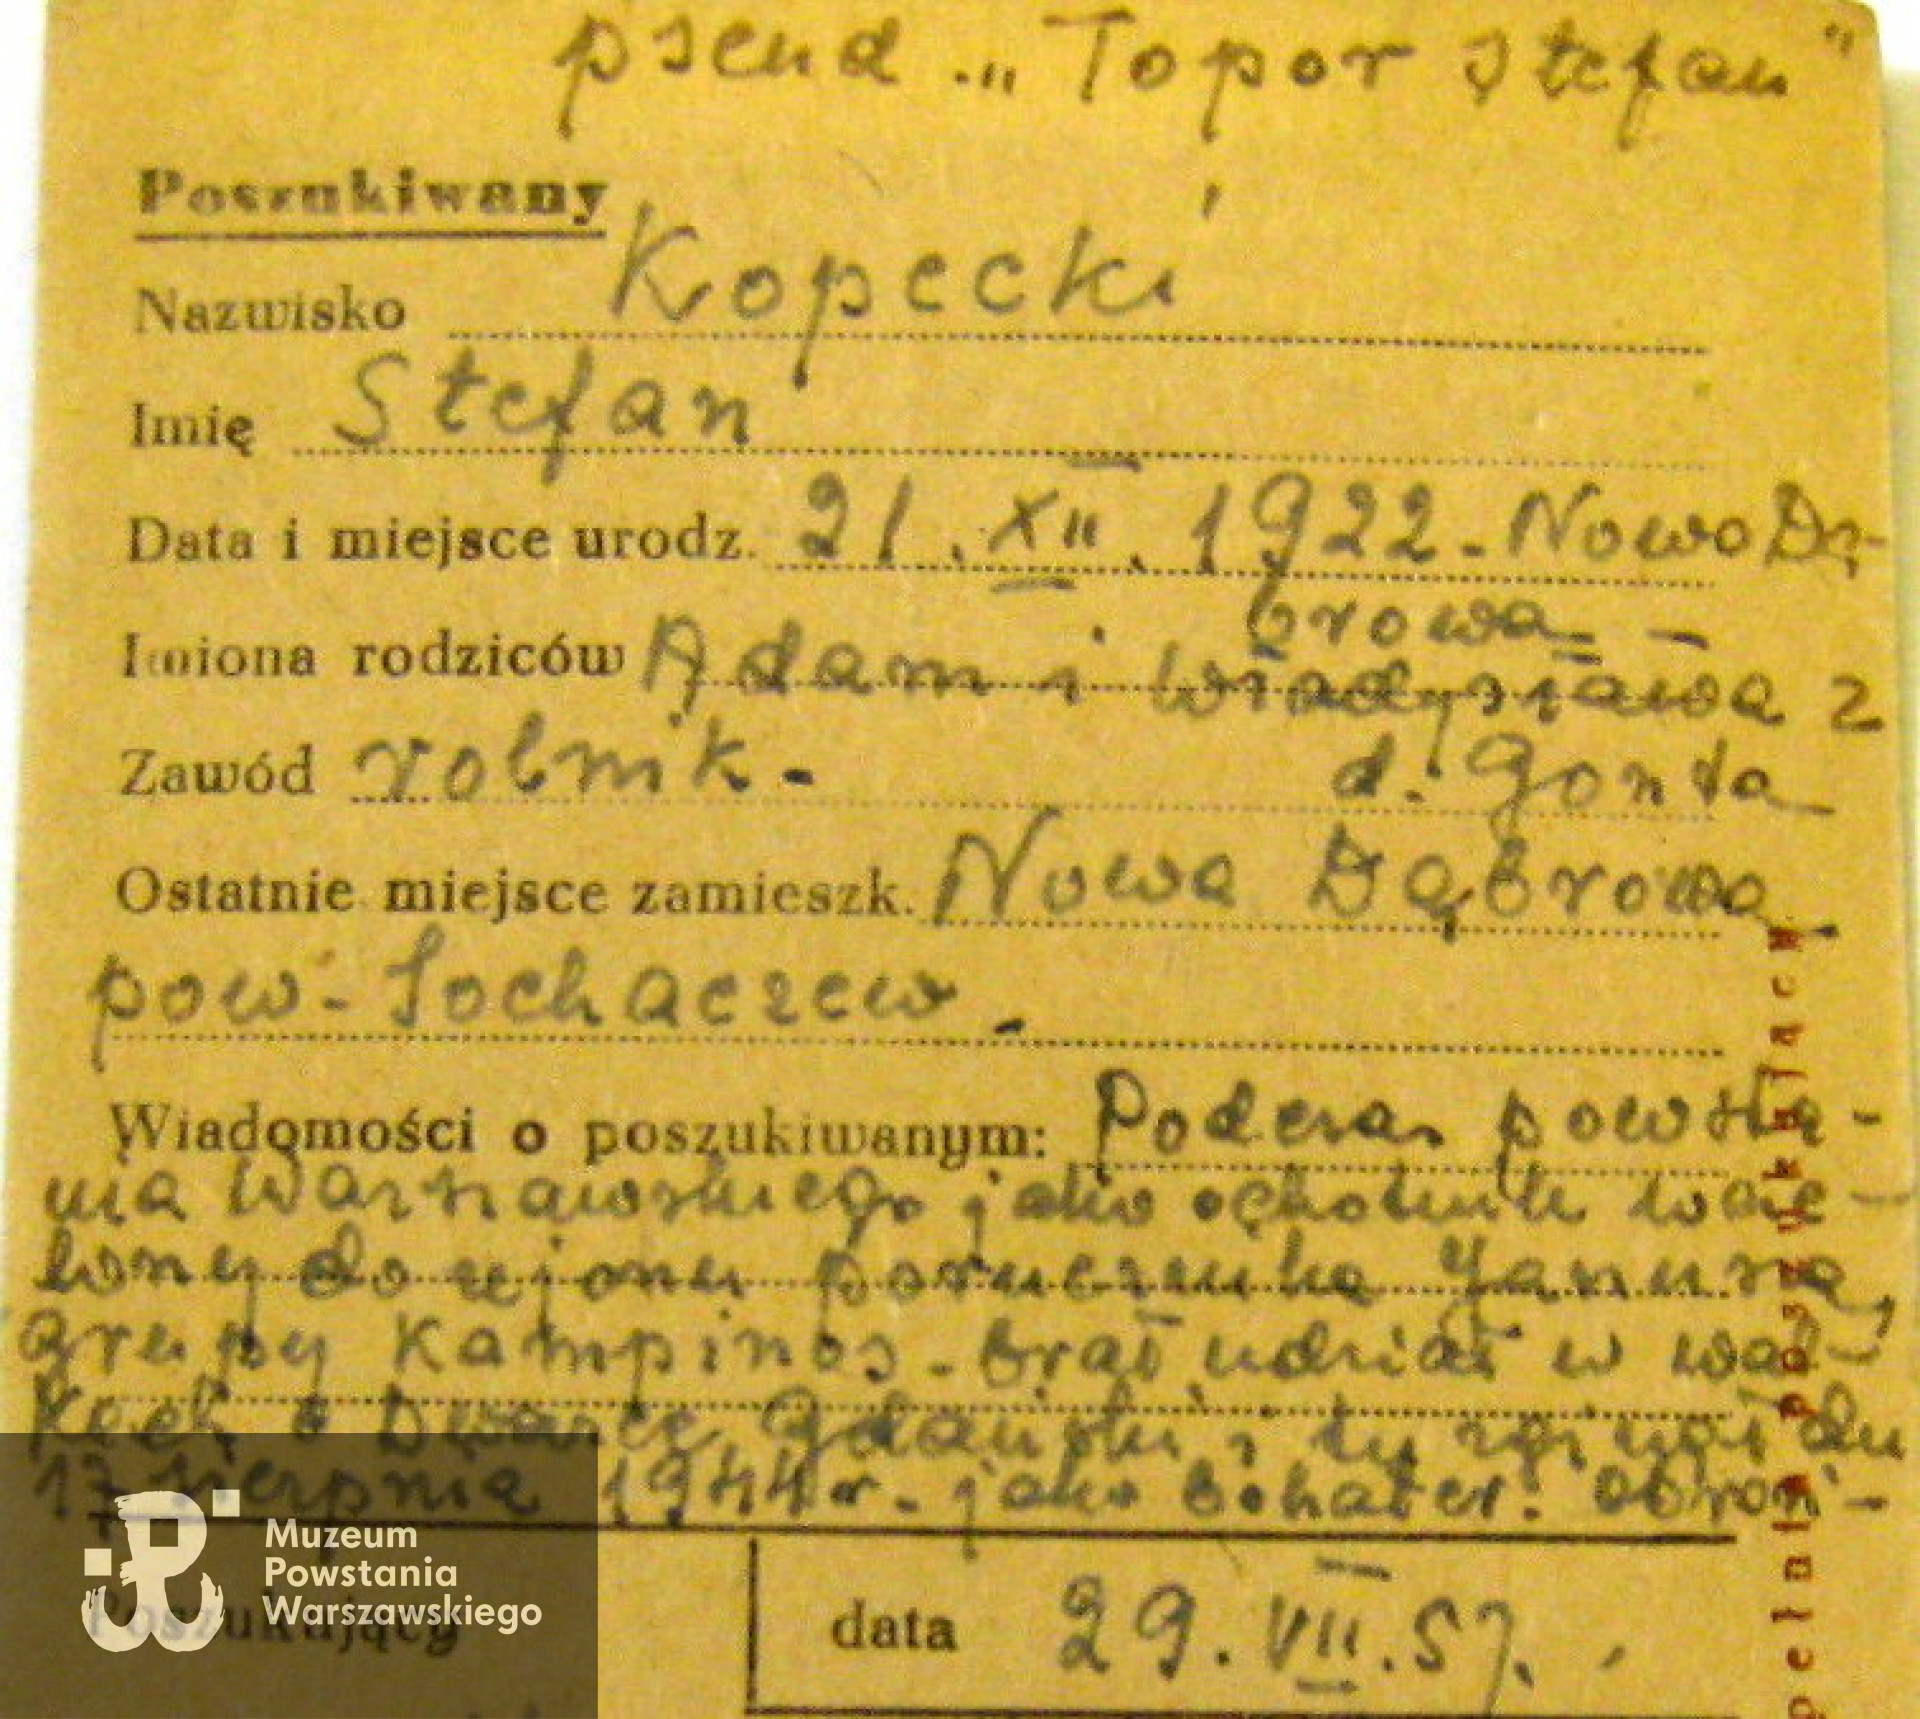 pseud. „Topor Stefan"
Poszukiwany
Nazwisko Kopecki
Imię Stefan
Data i miejsce urodz. 21.XII.1922. Nowo Dą-
browa
Imiona rodziców Adam i Władysława z
Zawód rolnik. d. Gonta
Ostatnie miejsce zamieszk. Nowa Dąbrowa
pow. Sochaczew.
Wiadomości o poszukiwanym: Podczas powsta-
nia Warszawskiego jako ochotnik wcie-
lony do rejonu porucznika Janusza
grupy Kampinos. brał udział w wal-
kach o Dworzec Gdański i tu zginął dn
17 sierpnia 1944 r. jako bohater. obroń-
Poszukujący data 29.VII.57.
Muzeum
Powstania
Warszawskiego